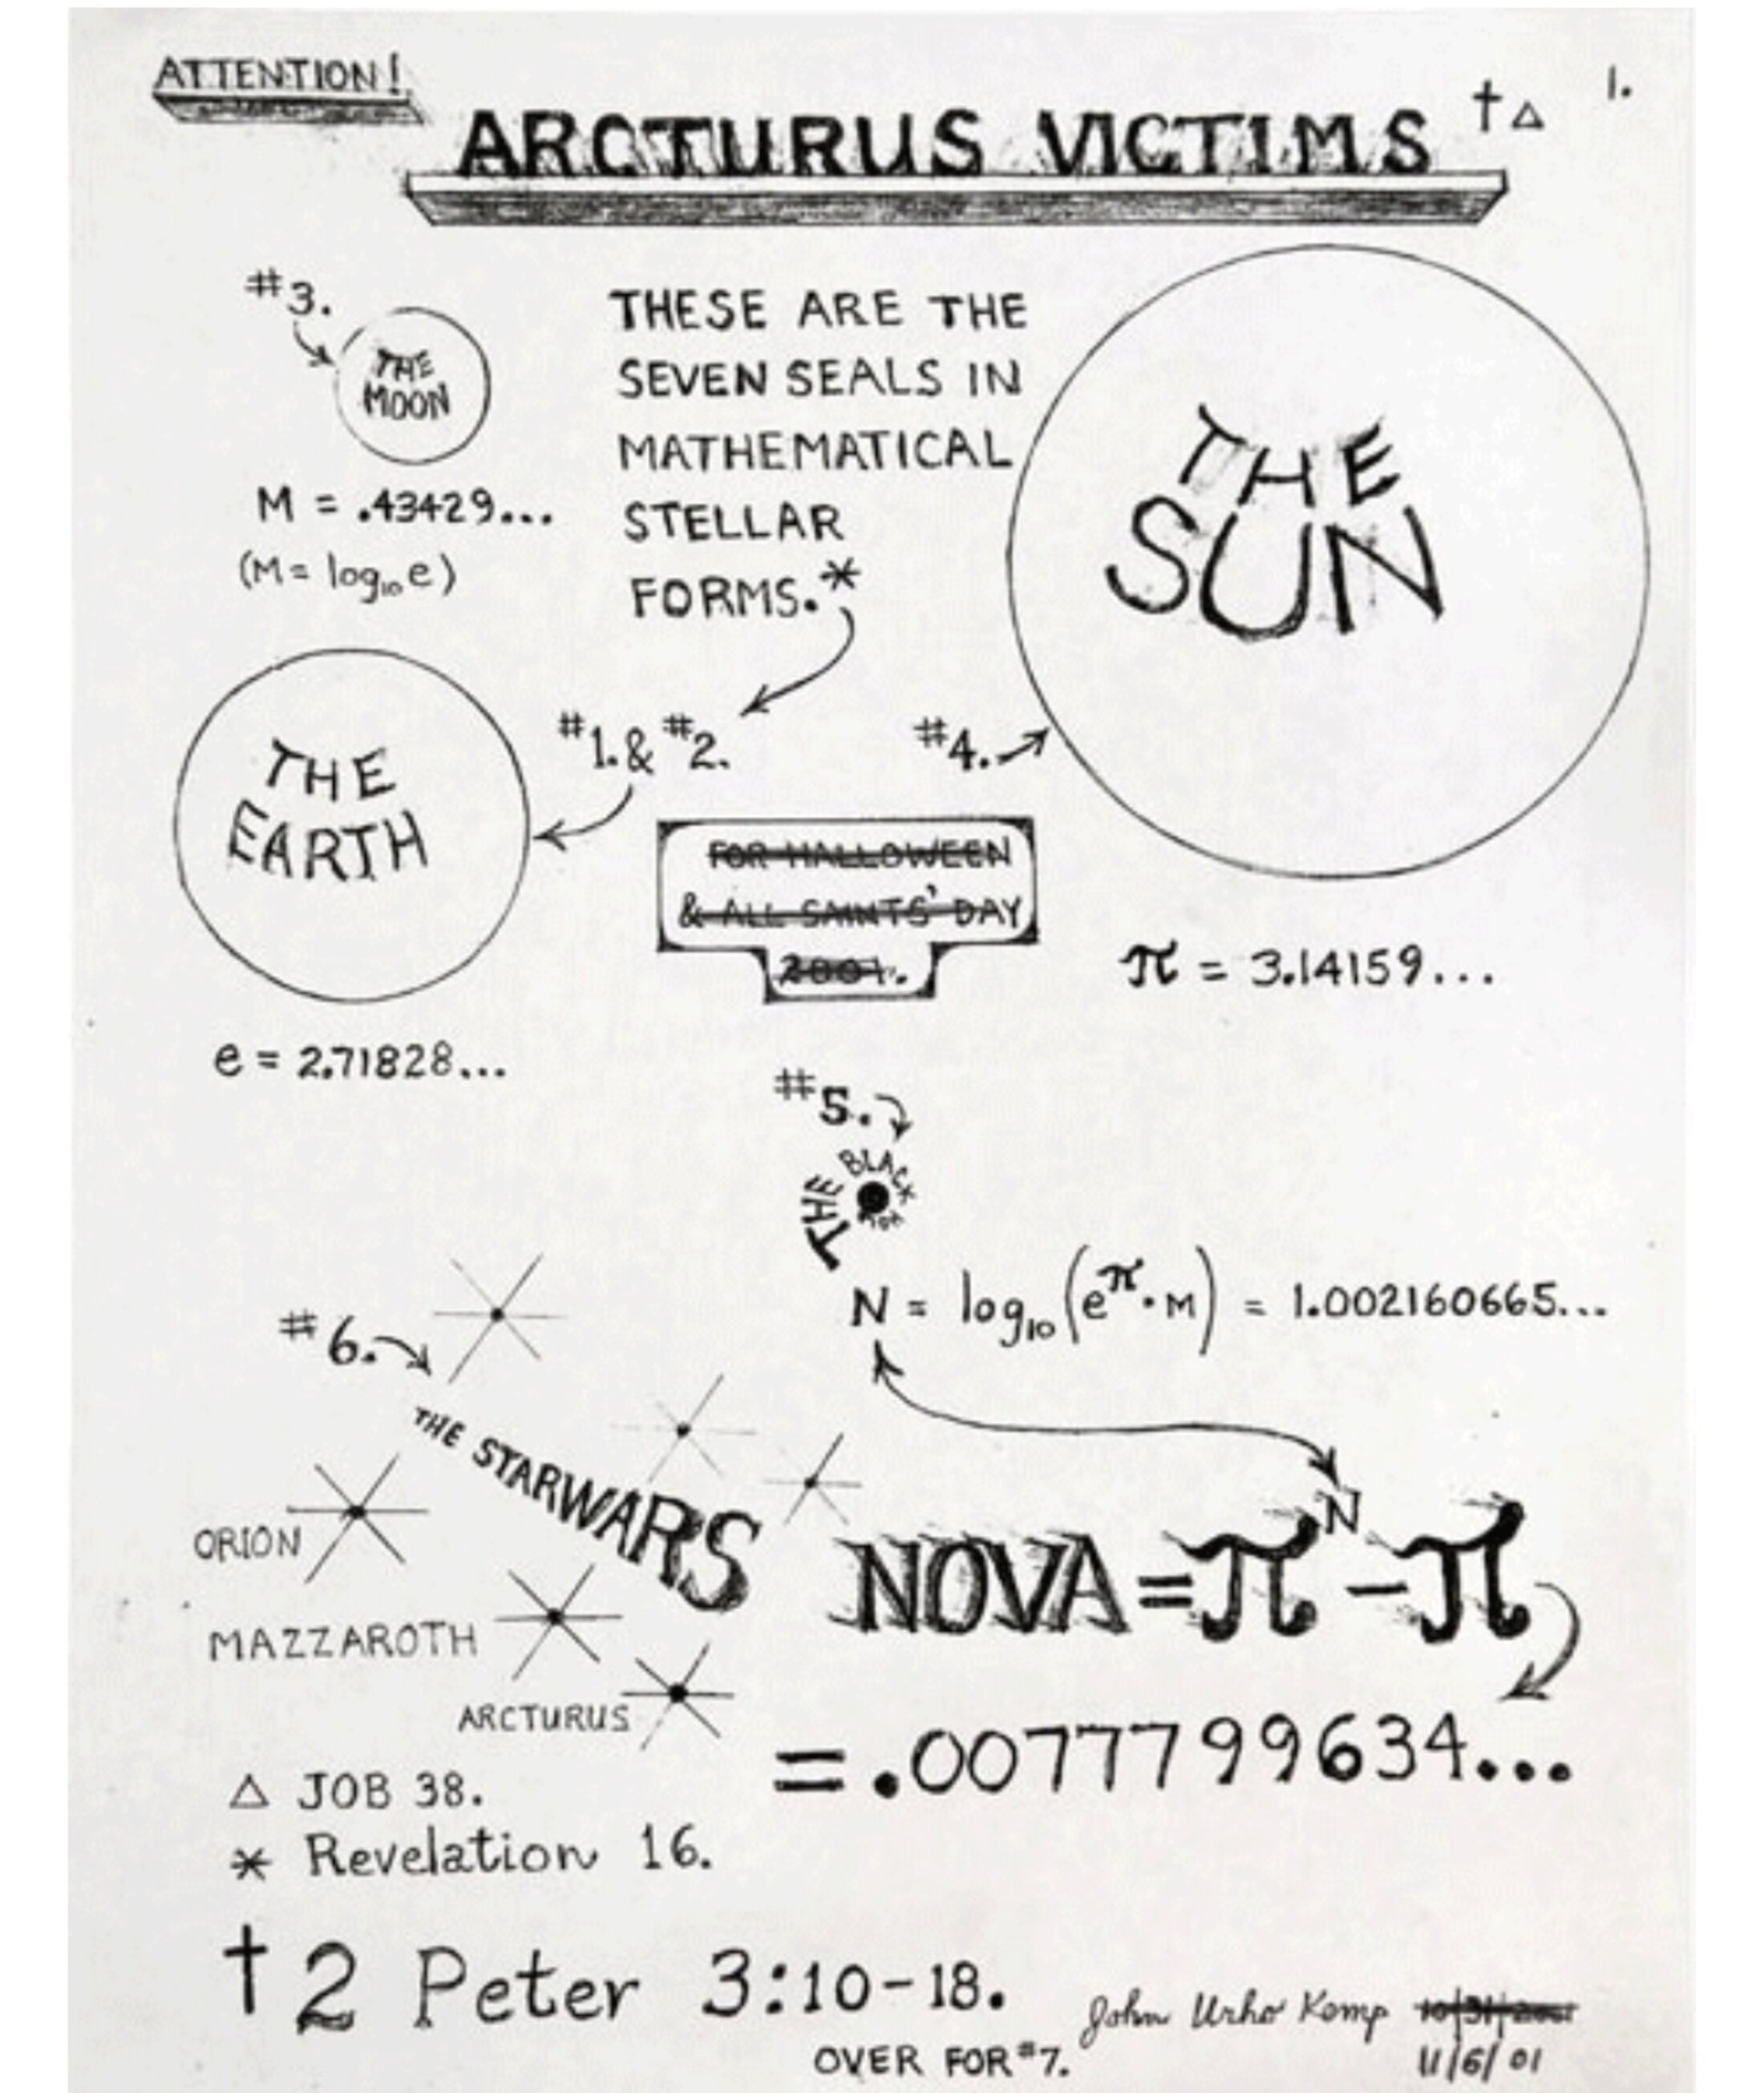 ATTENTION!
ARCTURUS VICTIMS †△
1.
#3.
THE
MOON
M = .43429...
(M = log₁₀e)
THESE ARE THE
SEVEN SEALS IN
MATHEMATICAL
STELLAR
FORMS.*
THE
SUN
#1. & #2.
#4.
THE
EARTH
FOR HALLOWEEN
& ALL SAINTS' DAY
2001.
π = 3.14159...
e = 2.71828...
#5.
THE BLACK
N = log₁₀(e^π·M) = 1.002160665...
#6.
THE STARWARS
ORION
MAZZAROTH
ARCTURUS
NOVA = π^N - π
= .0077799634...
△ JOB 38.
* Revelation 16.
† 2 Peter 3:10-18.
John Urho Kemp 10/31/2001
OVER FOR #7.
11/6/01